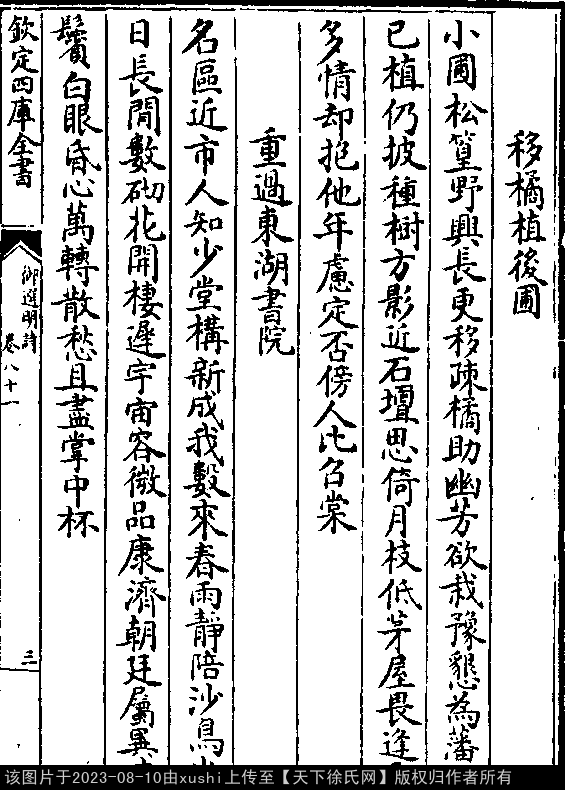 移橘植後圃
小圃松篁野興長更移疎橘助幽芳欲栽豫懇為藩
已植仍披種樹方影近石壇思倚月枝低茅屋畏逢
多情却抱他年慮定否傍人比召棠
重過東湖書院
名區近市人知少堂構新成我數來春雨靜陪沙鳥
日長閒數砌花開棲遲宇宙容微品康濟朝廷屬異
鬢白眼昏心萬轉散愁且盡掌中杯
欽定四庫全書
御選明詩
卷八十一
三
该图片于2023-08-10由xushi上传至【天下徐氏网】版权归作者所有